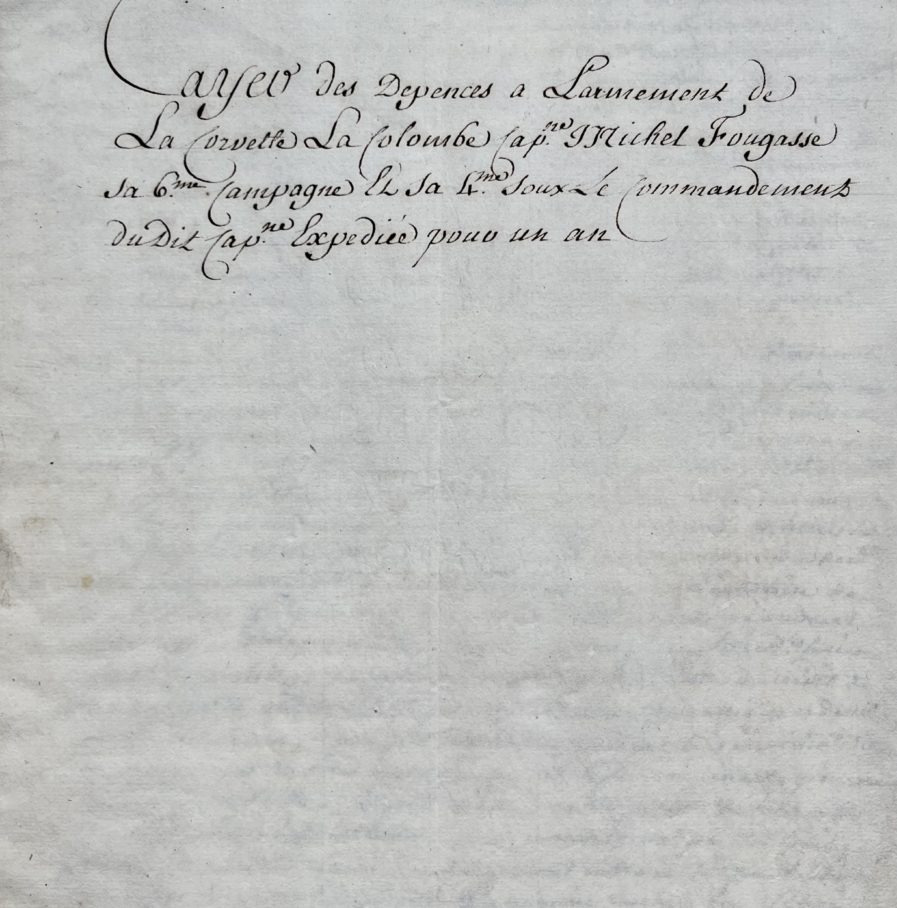 Cayer des Depences a Larmement de
La Corvette La Colombe Cap.ne Michel Fougasse
sa 6.me Campagne Et sa 4.me soux Le Commandement
du Dit Cap.ne Expediée pour un an